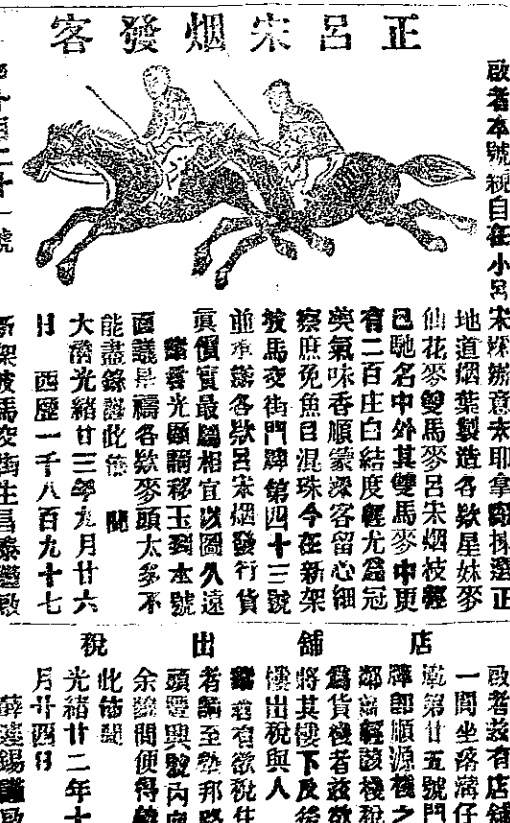 正呂宋烟發客
啟者本號親自在小呂宋採辦意朱耶拿揀選正
地道烟葉製造各欵星妹麥
仙花麥雙馬麥呂宋烟枝經
已馳名中外其雙馬麥中更
有二百庄白結度輕尤為冠
美氣味香順蒙客留心細
察庶免魚目混珠今在新架
坡馬交街門牌第四十三號
前承辦各欵呂宋烟發行貨
真價實最屬相宜以圖久遠
諸君光顧請移玉到本號
面議是禱各欵麥頭太多不
能盡錄謹此佈 聞
大清光緒廿三年九月廿六
日 西歷一千八百九十七
新架坡馬交街生昌泰謹啟
店舖出稅
啟者茲有店舖
一間坐落溝仔
墘第廿五號門
牌即順源棧之
鄰前經該棧稅
為貨棧者茲欲
將其樓下及後
樓出稅與人
諸君有欲稅住
者請至邦路
頭豐興號內向
余間便得
此佈聞
光緒廿二年十
月廿四日
薛錫謹啟